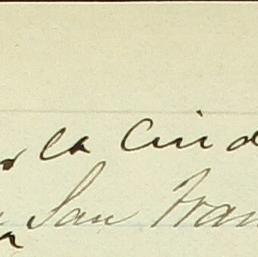 la Ciud
San Fran